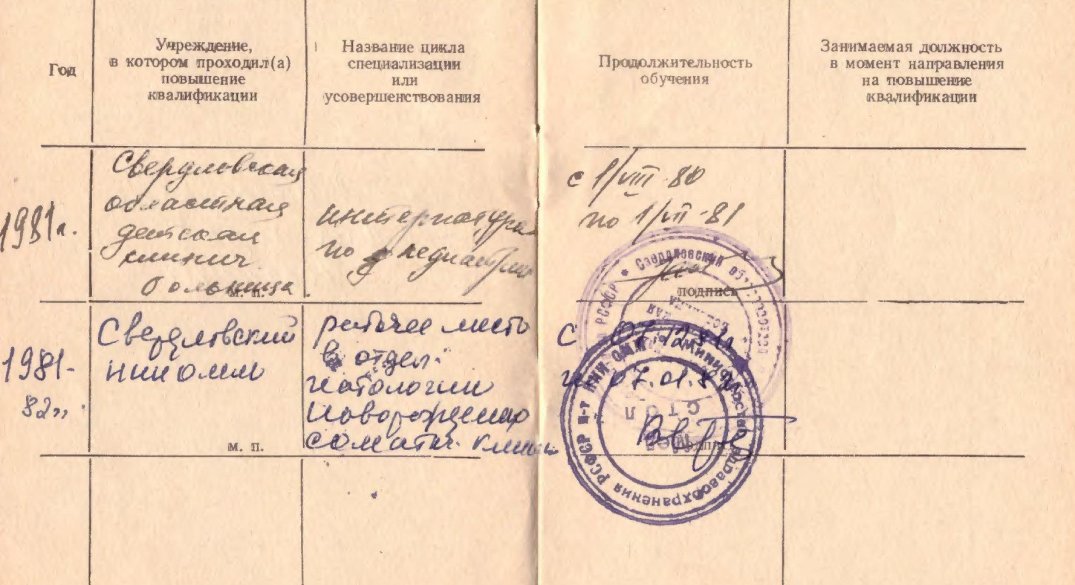 Год
Учреждение,
в котором проходил(а)
повышение
квалификации
Название цикла
специализации
или
усовершенствования
Продолжительность
обучения
Занимаемая должность
в момент направления
на повышение
квалификации
1981г.
Свердловская
областная
детская
клинич.
больница
м. п.
интернатура
по педиатрии
с 1/VIII-80
по 1/VII-81
подпись
1981-
82гг
Свердловский
НИИ ОММ
м. п.
рабочее место
в отдел.
патологии
новорожденно
соматич. клини
с 01.12.81
07.01.82
Свердловский
РСФСР
НИИ ОММ
СТОЛ
здравоохранения РСФСР